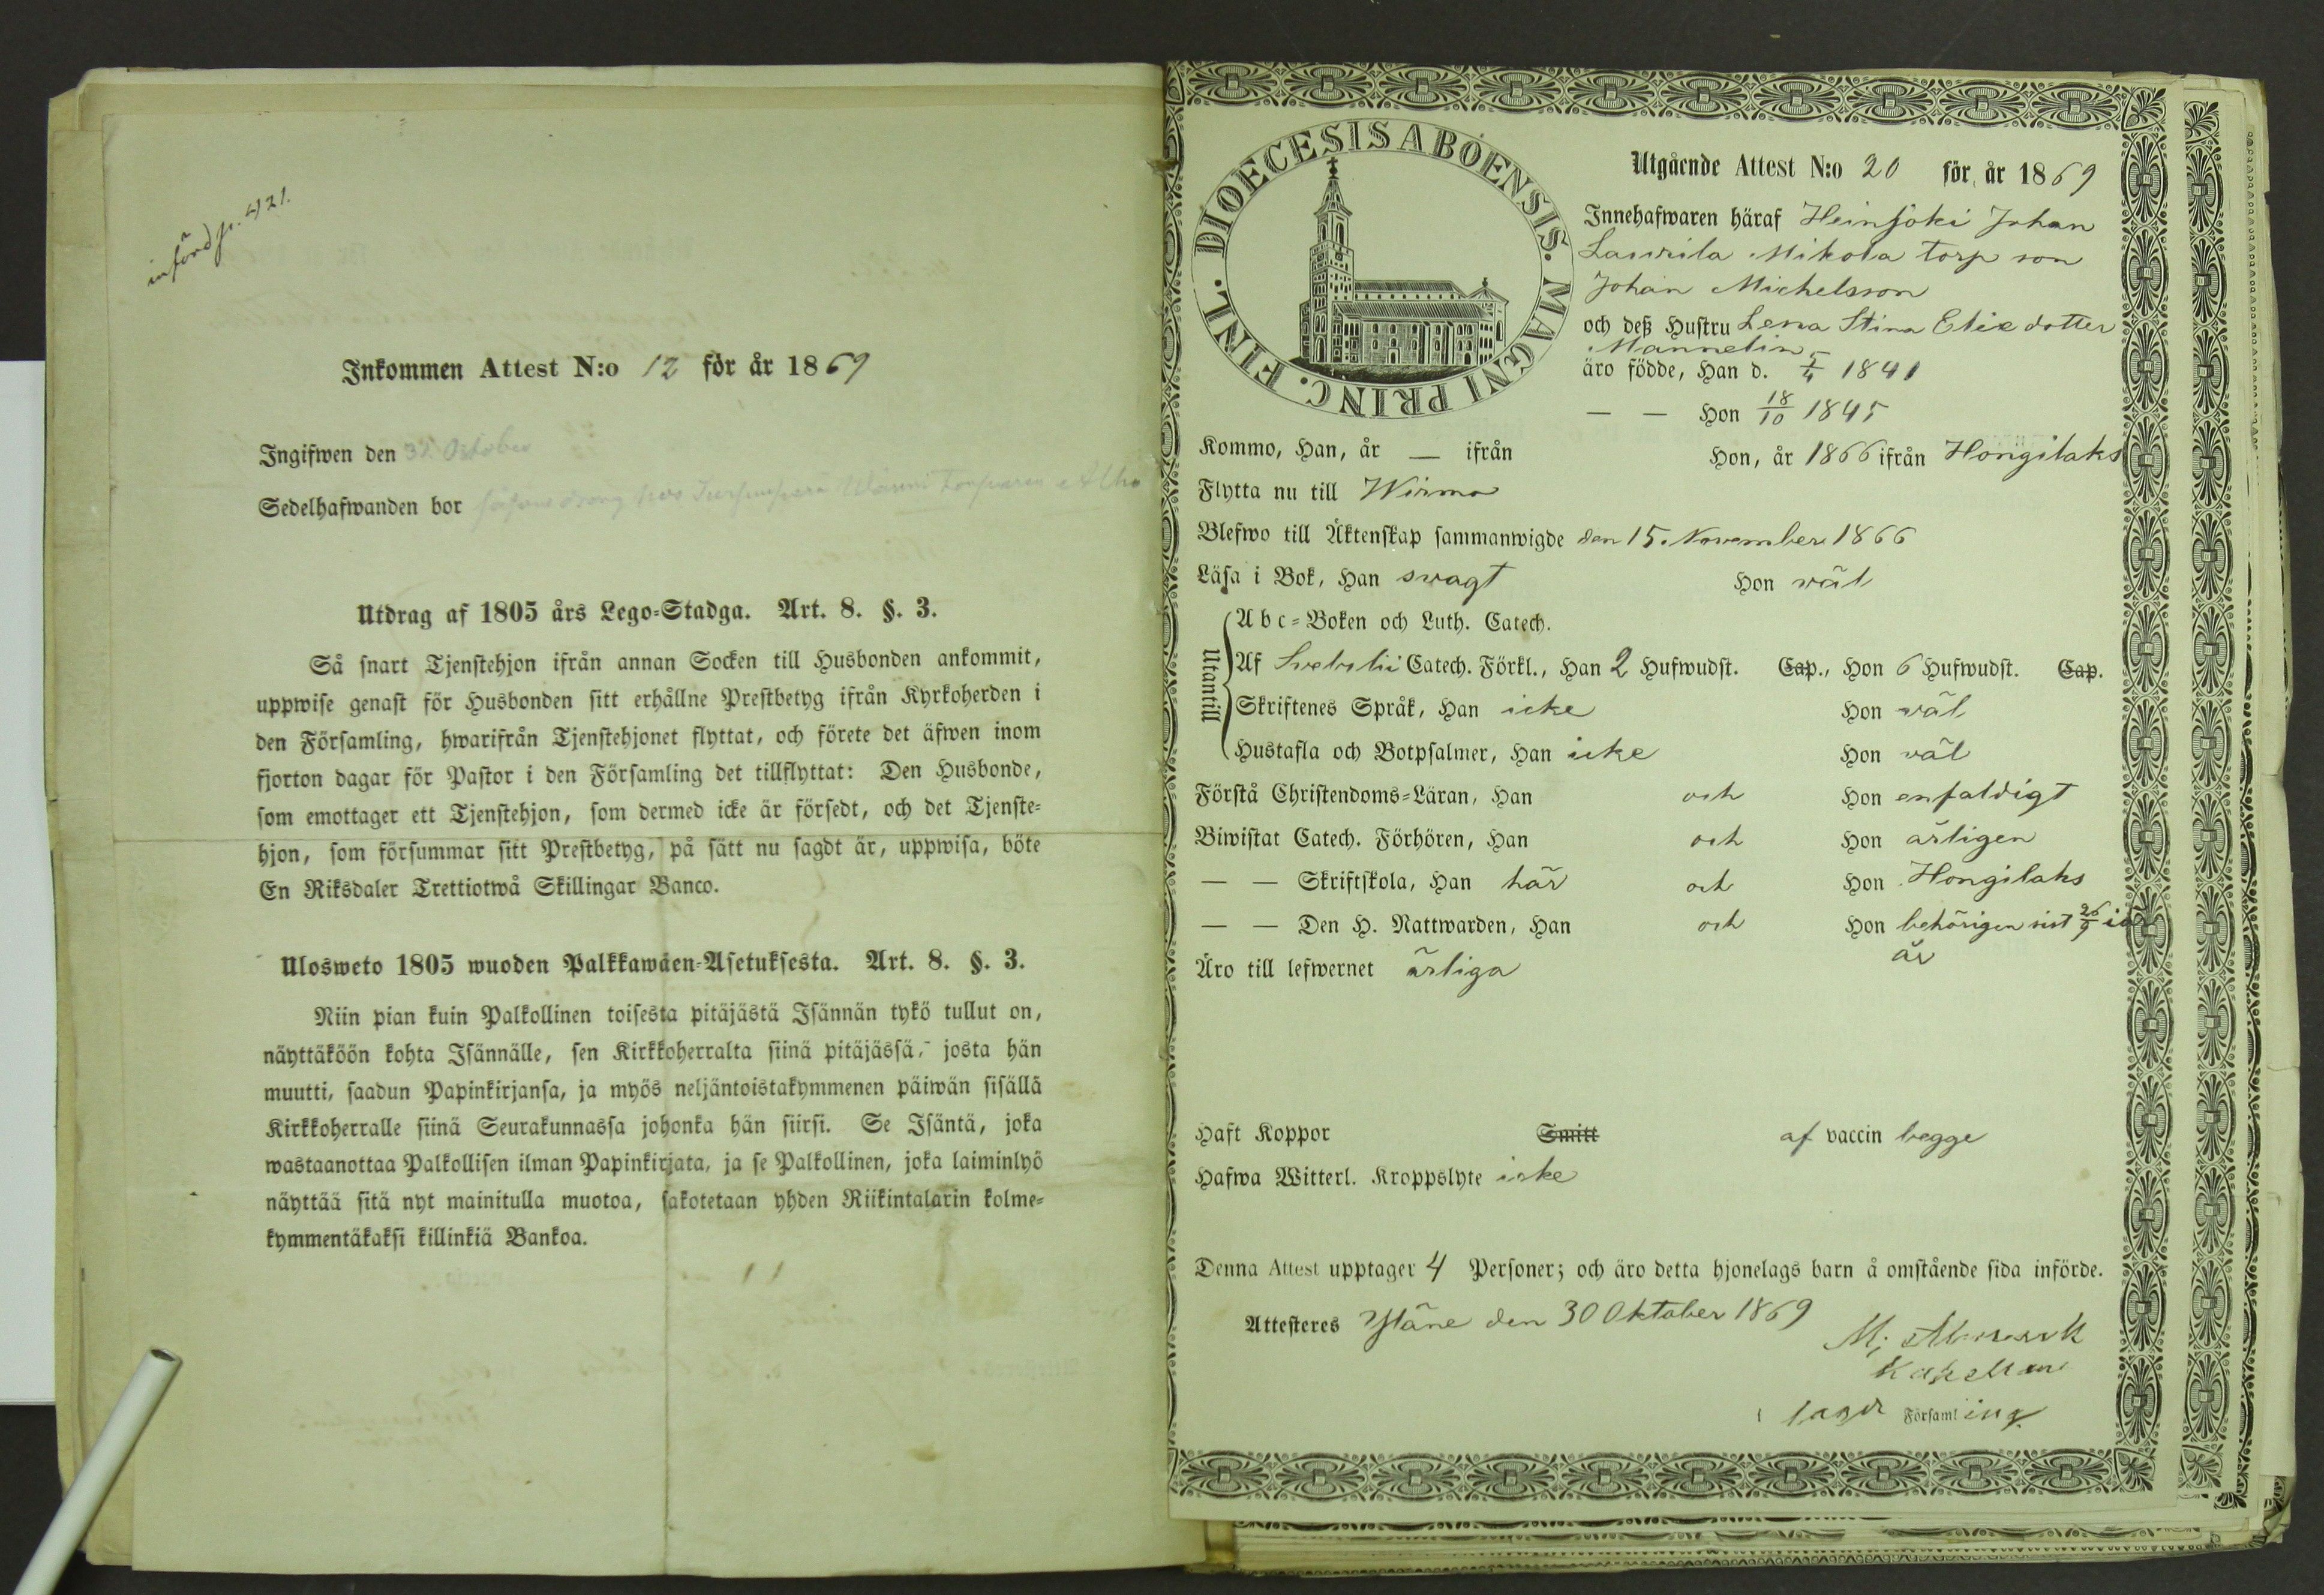 införd p. 421.
Inkommen Attest N:o 12 för år 1869
Ingifwen den 31 October
Sedelhafwanden bor
Utdrag af 1805 års Lego-Stadga. Art. 8. §. 3.
Så snart Tjenstehjon ifrån annan Socken till Husbonden ankommit,
uppwise genast för Husbonden sitt erhållne Prestbetyg ifrån Kyrkoherden i
den Församling, hwarifrån Tjenstehjonet flyttat, och förete det äfwen inom
fjorton dagar för Pastor i den Församling det tillflyttat: Den Husbonde,
som emottager ett Tjenstehjon, som dermed icke är försedt, och det Tjenste-
hjon, som försummar sitt Prestbetyg, på sätt nu sagdt är, uppwisa, böte
En Riksdaler Trettiotwå Skillingar Banco.
Ulosweto 1805 wuoden Palkkawäen-Asetuksesta. Art. 8. §. 3.
Niin pian kuin Palkollinen toisesta pitäjästä Isännän tykö tullut on,
näyttäköön kohta Isännälle, sen Kirkkoherralta siinä pitäjässä, josta hän
muutti, saadun Papinkirjansa, ja myös neljäntoistakymmenen päiwän sisällä
Kirkkoherralle siinä Seurakunnassa johonka hän siirsi. Se Isäntä, joka
wastaanottaa Palkollisen ilman Papinkirjata, ja se Palkollinen, joka laiminlyö
näyttää sitä nyt mainitulla muotoa, sakotetaan yhden Riikintalarin kolme-
kymmentäkaksi killinkiä Bankoa.
DIOECESIS ABOENSIS. MAGNI PRINC. FINL.
Utgående Attest N:o 20 för år 1869
Innehafwaren häraf Heinjoki Johan
Laurila Mikola torp son
Johan Michelsson
och deß Hustru Lena Stina Elie dotter
Mannelin
äro födde, Han d. 5/4 1841
— — Hon 18/10 1845
Kommo, Han, år — ifrån Hon, år 1866 ifrån Hongilaks
Flytta nu till Wirmo
Blefwo till Äktenskap sammanwigde den 15. November 1866
Läsa i Bok, Han swagt Hon wäl
Utantill
Abc-Boken och Luth. Catech.
Af Svebelii Catech. Förkl., Han 2 Hufwudst. Cap., Hon 6 Hufwudst. Cap.
Skriftenes Språk, Han icke Hon wäl
Hustafla och Botpsalmer, Han icke Hon wäl
Förstå Christendoms-Läran, Han och Hon enfaldigt
Biwistat Catech. Förhören, Han och Hon årligen
— — Skriftskola, Han här och Hon Hongilaks
— — Den H. Nattwarden, Han och Hon behörigen sist 26/9 i
år
Äro till lefwernet ärliga
Haft Koppor Smitt af vaccin begge
Hafwa Witterl. Kroppslyte icke
Denna Attest upptager 4 Personer; och äro detta hjonelags barn å omstående sida införde.
Attesteres Yläne den 30 Oktober 1869
Kapellan
i Församling